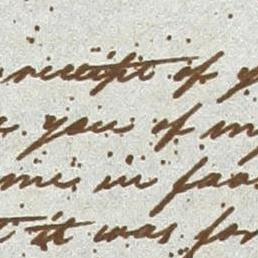 receipt of
you of my
me in
it was for